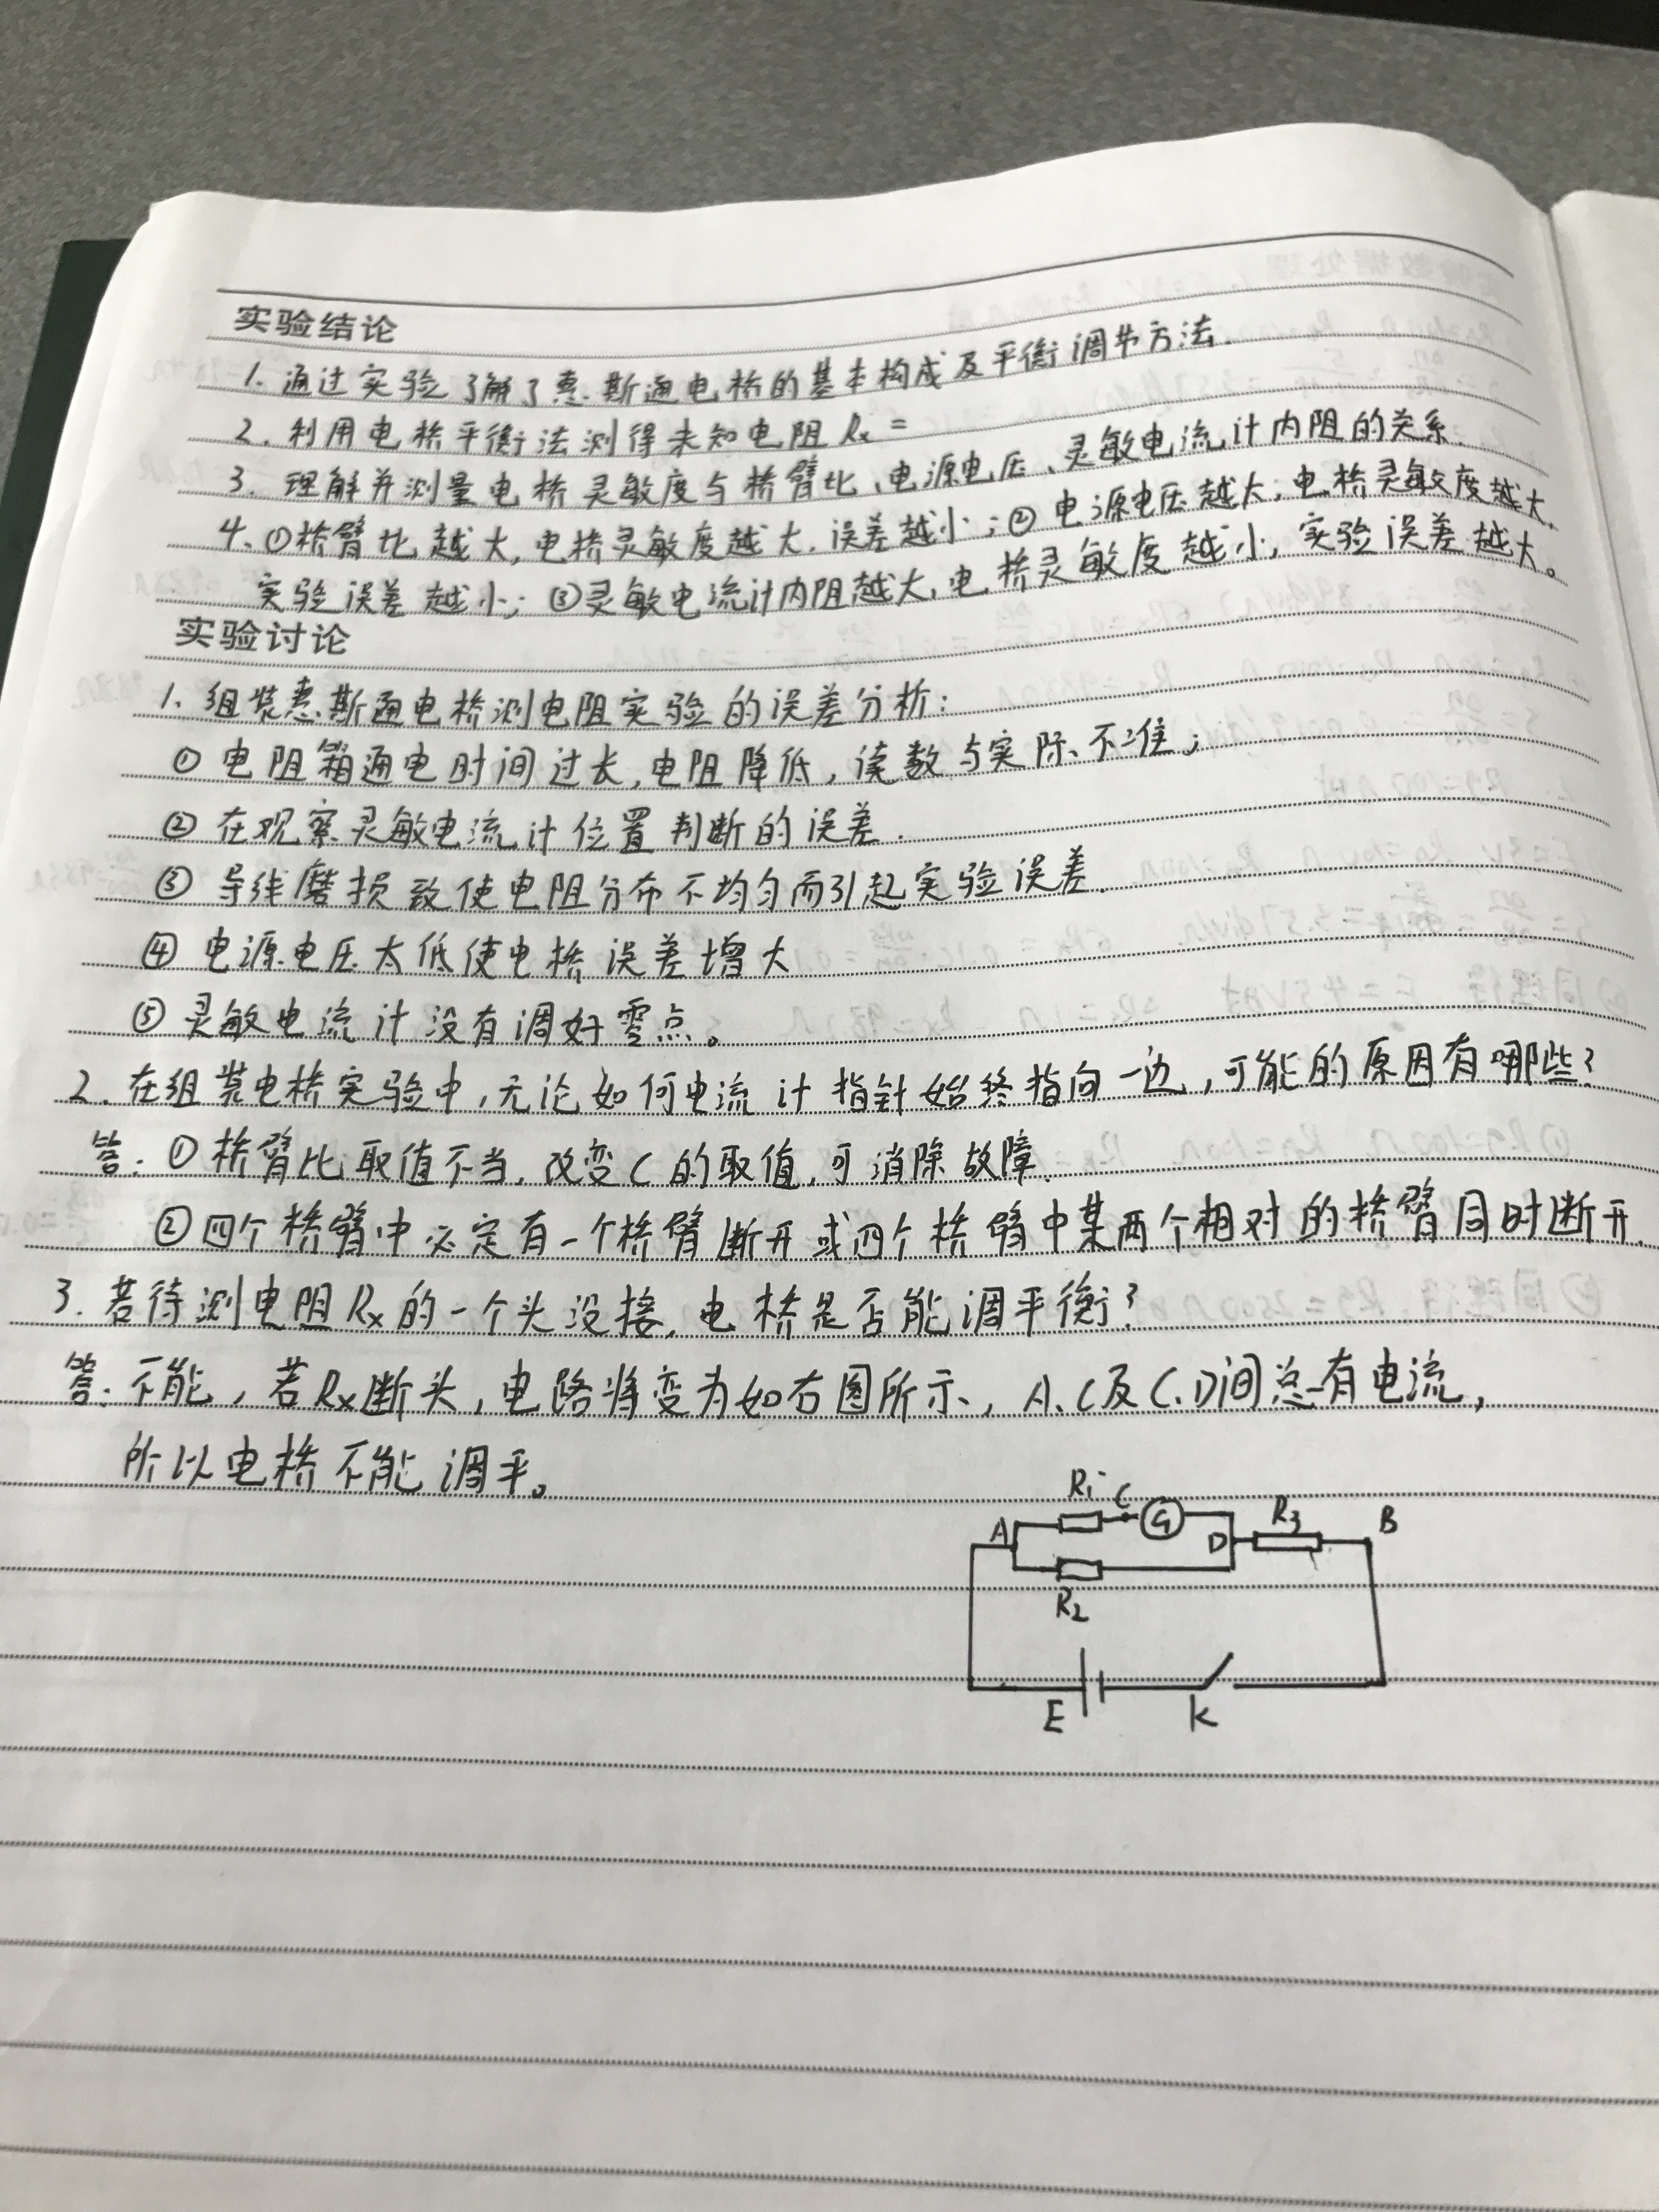 实验结论
1. 通过实验了解了惠斯通电桥的基本构成及平衡调节方法.
2. 利用电桥平衡法测得未知电阻Rx =
3. 理解并测量电桥灵敏度与桥臂比、电源电压、灵敏电流计内阻的关系.
4. ①桥臂比越大,电桥灵敏度越大,误差越小;②电源电压越大,电桥灵敏度越大,
实验误差越小;③灵敏电流计内阻越大,电桥灵敏度越小,实验误差越大。
实验讨论
1. 组装惠斯通电桥测电阻实验的误差分析:
① 电阻箱通电时间过长,电阻降低,读数与实际不准;
② 在观察灵敏电流计位置判断的误差.
③ 导线磨损致使电阻分布不均匀而引起实验误差.
④ 电源电压太低使电桥误差增大
⑤ 灵敏电流计没有调好零点。
2. 在组装电桥实验中,无论如何电流计指针始终指向一边,可能的原因有哪些?
答: ①桥臂比取值不当,改变C的取值,可消除故障.
②四个桥臂中必定有一个桥臂断开或四个桥臂中某两个相对的桥臂同时断开.
3. 若待测电阻Rx的一个头没接,电桥是否能调平衡?
答: 不能,若Rx断头,电路将变为如右图所示,A、C及C、D间总有电流,
所以电桥不能调平。
R1 C G R3 B
A D
R2
E K